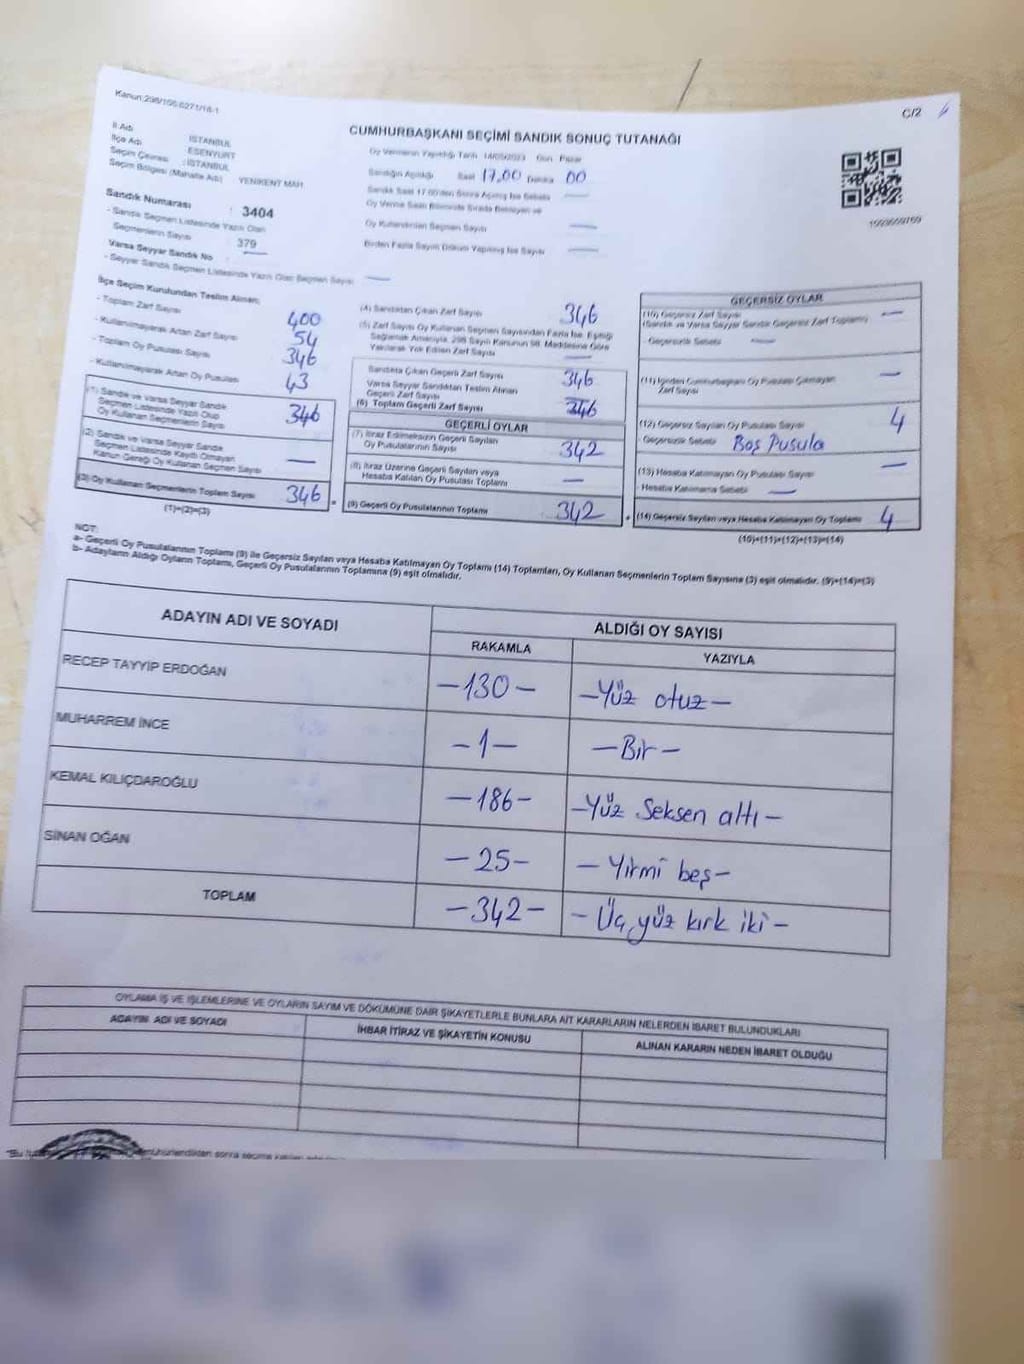 Kanun:298/105;6271/18-1
C/2
CUMHURBAŞKANI SEÇİMİ SANDIK SONUÇ TUTANAĞI
İl Adı : İSTANBUL
İlçe Adı : ESENYURT
Seçim Çevresi : İSTANBUL
Seçim Bölgesi (Mahalle Adı) YENİKENT MAH.
Sandık Numarası : 3404
- Sandık Seçmen Listesinde Yazılı Olan
Seçmenlerin Sayısı : 379
Varsa Seyyar Sandık No : —
- Seyyar Sandık Seçmen Listesinde Yazılı Olan Seçmen Sayısı —
Oy Vermenin Yapıldığı Tarih 14/05/2023 Gün Pazar
Sandığın Açıldığı Saat 17,00 Dakika 00
Sandık Saat 17.00'den Sonra Açılmış İse Sebebi —
Oy Verme Saati Bitiminde Sırada Bekleyen ve
Oy Kullandırılan Seçmen Sayısı —
Birden Fazla Sayım Döküm Yapılmış İse Sayısı —
İlçe Seçim Kurulundan Teslim Alınan;
- Toplam Zarf Sayısı 400
- Kullanılmayarak Artan Zarf Sayısı 54
- Toplam Oy Pusulası Sayısı 346
- Kullanılmayarak Artan Oy Pusulası 43
(1) Sandık ve Varsa Seyyar Sandık
Seçmen Listesinde Yazılı Olup
Oy Kullanan Seçmenlerin Sayısı 346
(2) Sandık ve Varsa Seyyar Sandık
Seçmen Listesinde Kayıtlı Olmayan
Kanun Gereği Oy Kullanan Seçmen Sayısı —
(3) Oy Kullanan Seçmenlerin Toplam Sayısı 346
(1)+(2)=(3)
(4) Sandıktan Çıkan Zarf Sayısı 346
(5) Zarf Sayısı Oy Kullanan Seçmen Sayısından Fazla İse, Eşitliği
Sağlamak Amacıyla, 298 Sayılı Kanunun 98. Maddesine Göre
Yakılarak Yok Edilen Zarf Sayısı —
Sandıkta Çıkan Geçerli Zarf Sayısı 346
Varsa Seyyar Sandıktan Teslim Alınan
Geçerli Zarf Sayısı —
(6) Toplam Geçerli Zarf Sayısı 346
GEÇERLİ OYLAR
(7) İtiraz Edilmeksizin Geçerli Sayılan
Oy Pusulalarının Sayısı 342
(8) İtiraz Üzerine Geçerli Sayılan veya
Hesaba Katılan Oy Pusulası Toplamı —
(9) Geçerli Oy Pusulalarının Toplamı 342
GEÇERSİZ OYLAR
(10) Geçersiz Zarf Sayısı —
(Sandık ve Varsa Seyyar Sandık Geçersiz Zarf Toplamı)
- Geçersizlik Sebebi —
(11) İçinden Cumhurbaşkanı Oy Pusulası Çıkmayan
Zarf Sayısı —
(12) Geçersiz Sayılan Oy Pusulası Sayısı 4
- Geçersizlik Sebebi Boş Pusula
(13) Hesaba Katılmayan Oy Pusulası Sayısı —
- Hesaba Katılmama Sebebi —
(14) Geçersiz Sayılan veya Hesaba Katılmayan Oy Toplamı 4
(10)+(11)+(12)+(13)=(14)
NOT:
a- Geçerli Oy Pusulalarının Toplamı (9) ile Geçersiz Sayılan veya Hesaba Katılmayan Oy Toplamı (14) Toplamları, Oy Kullanan Seçmenlerin Toplam Sayısına (3) eşit olmalıdır. (9)+(14)=(3)
b- Adayların Aldığı Oyların Toplamı, Geçerli Oy Pusulalarının Toplamına (9) eşit olmalıdır.
ADAYIN ADI VE SOYADI
ALDIĞI OY SAYISI
RAKAMLA YAZIYLA
RECEP TAYYİP ERDOĞAN —130— —Yüz otuz—
MUHARREM İNCE —1— —Bir—
KEMAL KILIÇDAROĞLU —186— —Yüz Seksen altı—
SİNAN OĞAN —25— —Yirmi beş—
TOPLAM —342— —Üç yüz kırk iki—
OYLAMA İŞ VE İŞLEMLERİNE VE OYLARIN SAYIM VE DÖKÜMÜNE DAİR ŞİKAYETLERLE BUNLARA AİT KARARLARIN NELERDEN İBARET BULUNDUKLARI
ADAYIN ADI VE SOYADI İHBAR İTİRAZ VE ŞİKAYETİN KONUSU ALINAN KARARIN NEDEN İBARET OLDUĞU